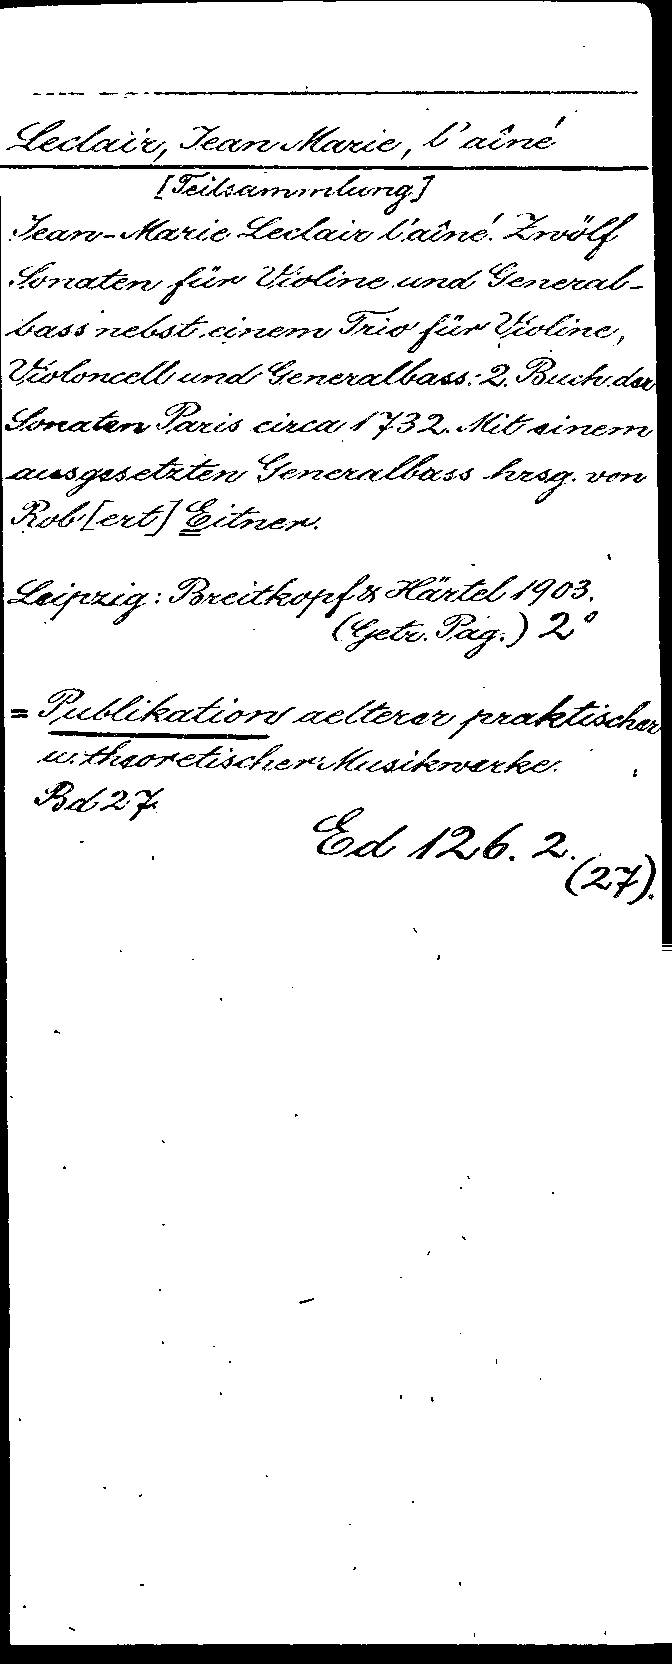 Leclair, Jean Marie, l'aîné
[Teilsammlung]
Jean-Marie Leclair l'aîné. Zwölf
Sonaten für Violine und General-
bass nebst einem Trio für Violine,
Violoncell und Generalbass. 2. Buch der
Sonaten Paris circa 1732. Mit einem
ausgesetzten Generalbass hrsg. von
Rob[ert] Eitner.
Leipzig: Breitkopf & Härtel 1903.
(Getr. Pag.) 2°
= Publikation aelterer praktischer
u. theoretischer Musikwerke.
Bd 27.
Ed 126. 2.
(27).